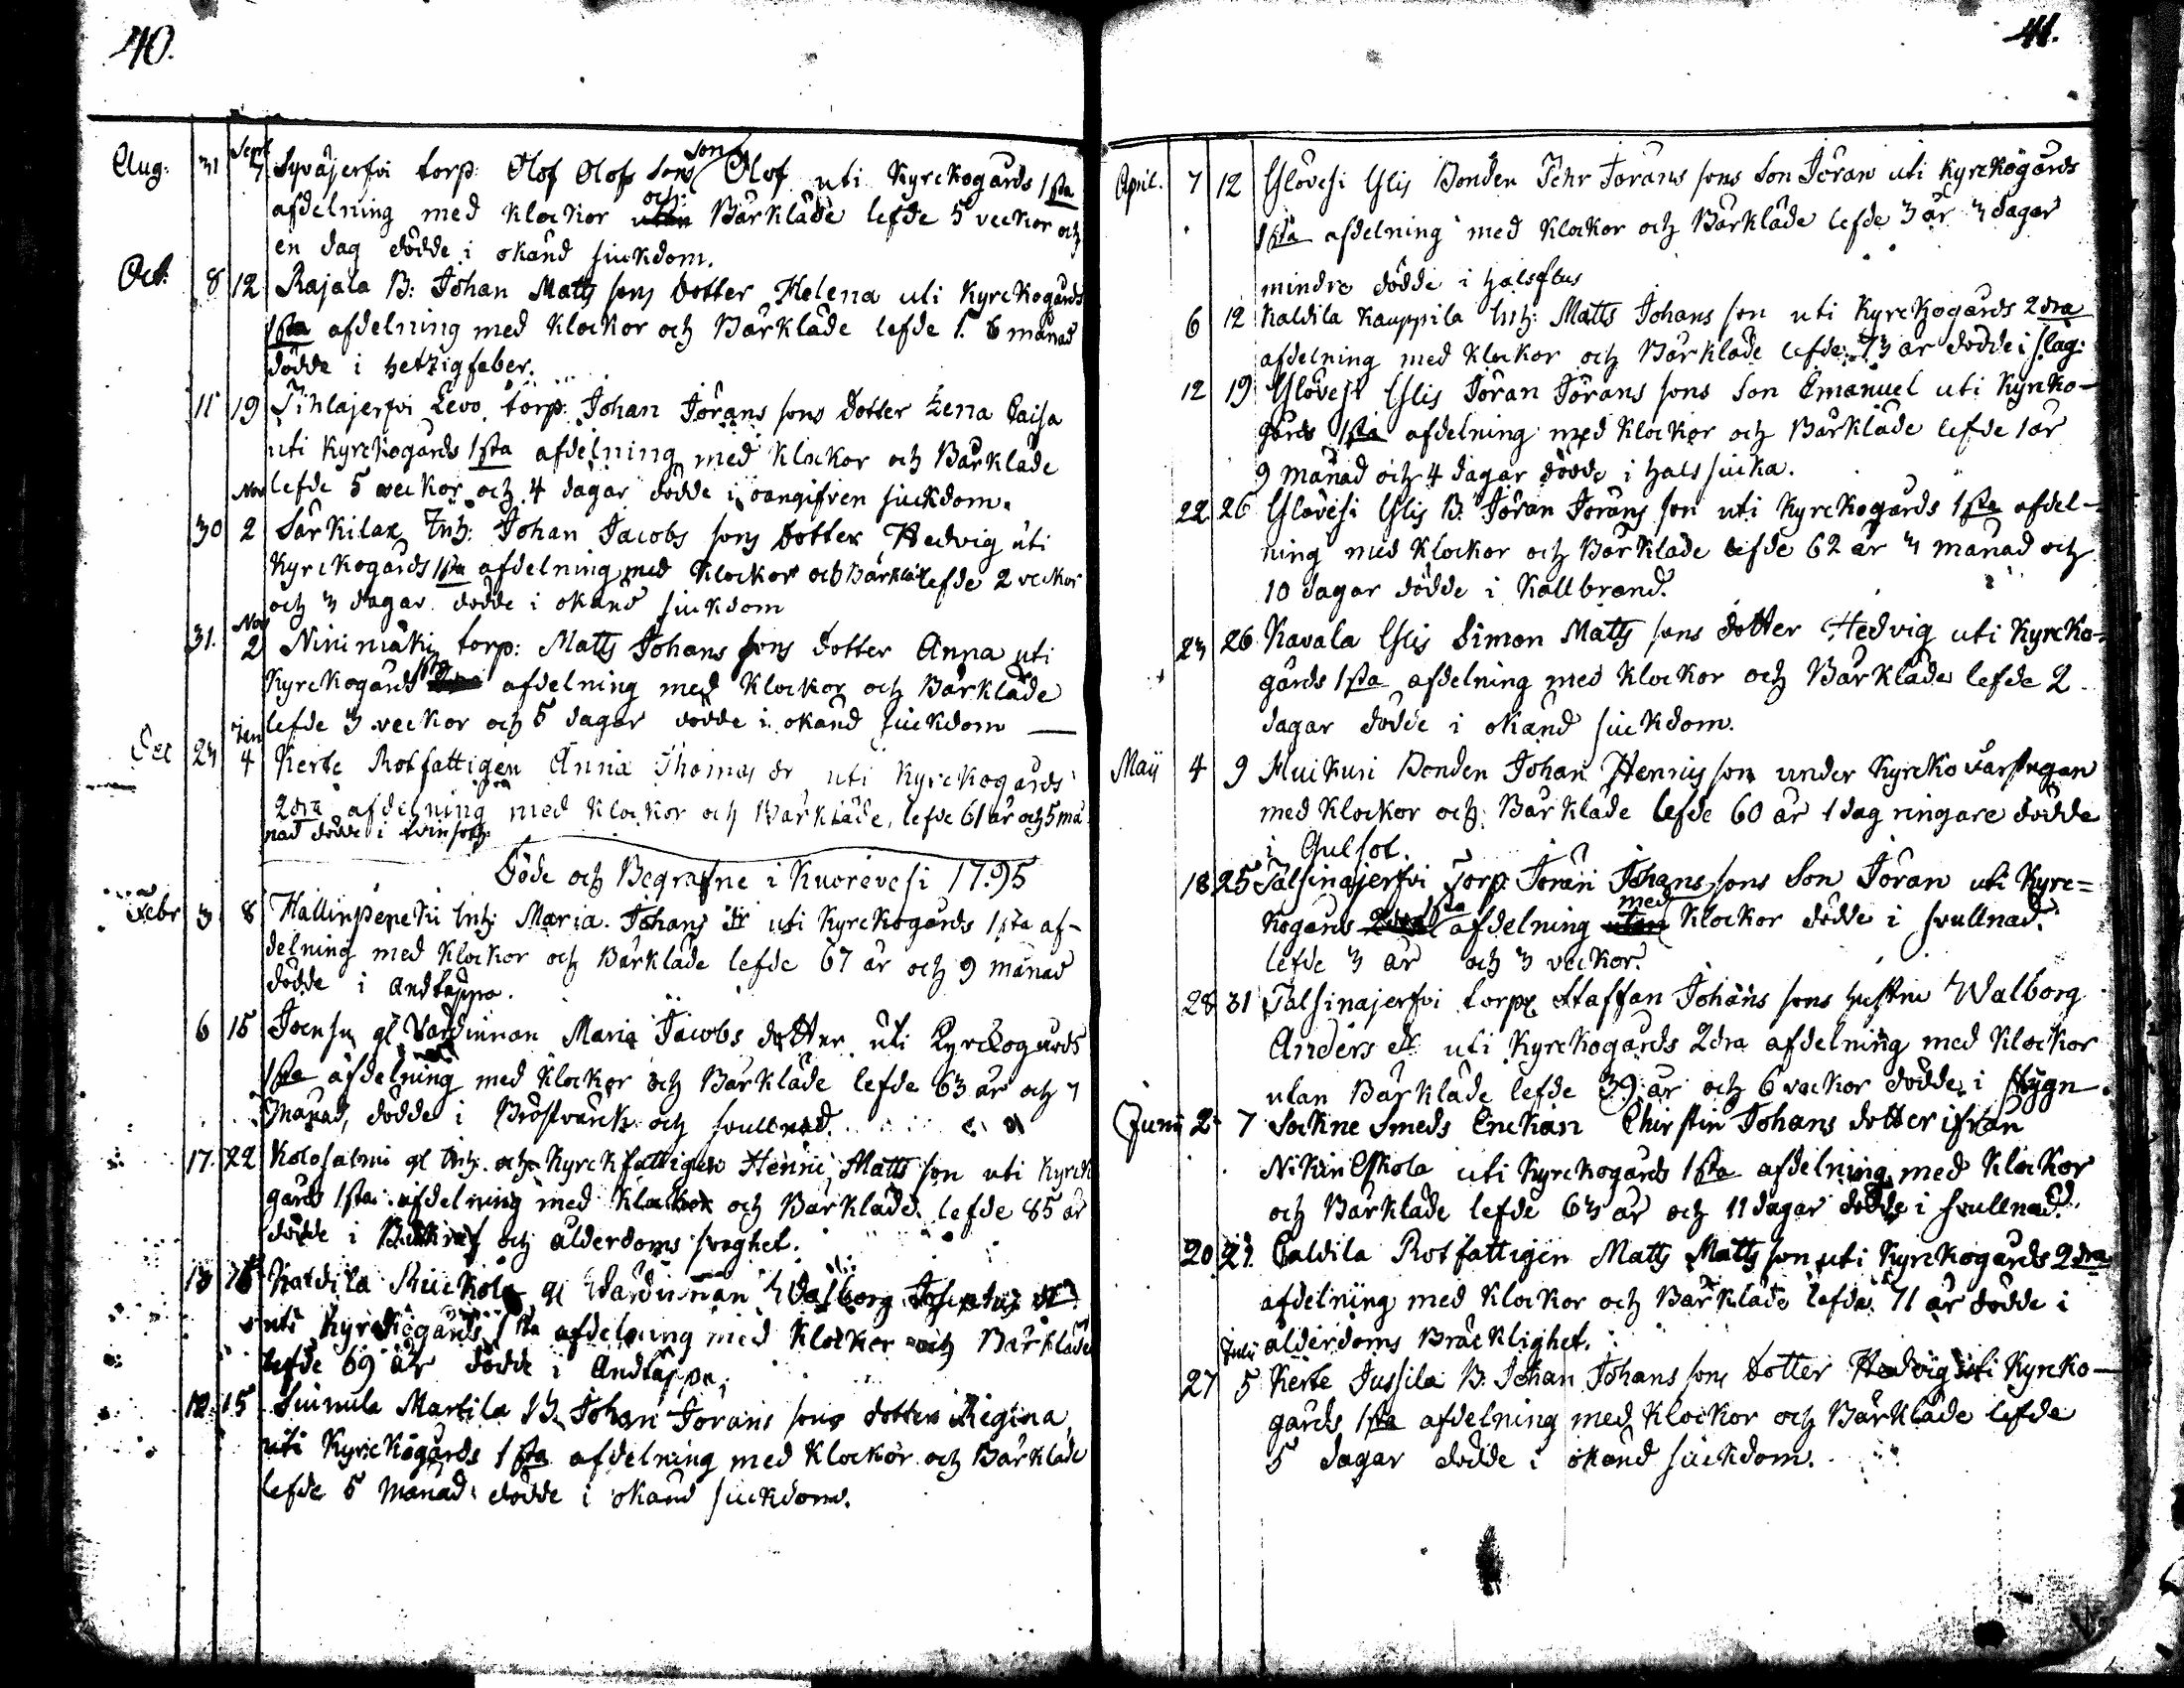 40.
Aug: 31 Sept 7 Syväjerfvi torp: Olof Olofs Sons son Olof uti Kyrckogårds 1sta
afdelning med klockor och Bårkläde lefde 5 veckor och
en dag dödde i okänd siuckdom.
Oct: 8 12 Rajala B: Johan Matts sons dotter Helena uti Kyrckogårds
1sta afdelning med klockor och Bårkläde lefde 1. 6 månad
dödde i hetzigfeber.
11 19 Tihlajerfvi Levo torp: Johan Jörans sons dotter Lena Caisa
uti Kyrckogårds 1sta afdelning med klockor och Bårkläde
lefde 5 veckor och 4 dagar dödde i oangifven siuckdom.
30 Nov 2 Särkilax Inh: Johan Jacobs sons dotter Hedvig uti
Kyrckogårds 1sta afdelning med klockor och Bårkläde lefde 2 veckor
och 3 dagar dödde i okänd siuckdom
31. Nov 2 Niinimäki torp: Matts Johans sons dotter Anna uti
Kyrckogårds 1sta afdelning med klockor och Bårkläde
lefde 3 veckor och 5 dagar dödde i okänd siuckdom
Dec 23 Jan 4 Kerte Rotfattigen Anna Thomas dr uti Kyrckogårds
2dra afdelning med klockor och Bårkläde, lefde 61 år och 5 må
nad dödde i tvinsot
Döde och Begrafne i Kuorevesi 1795
Febr 3 8 Hallinpeneki Inh: Maria Johans dr uti Kyrckogårds 1sta af-
delning med klockor och Bårkläde lefde 67 år och 9 månad
dödde i andtäppa.
6 15 gl Värdinnan Maria Jacobs dotter uti Kyrckogårds
1sta afdelning med klockor och Bårkläde lefde 63 år och 7
månad, dödde i Bröstvärck och svullnad.
17. 22 Kolosalmi gl Inh. och Kyrckfattigen Henric Matts son uti Kyrck
gårds 1sta afdelning med klockor och Bårkläde lefde 85 år
dödde i och ålderdoms svaghet.
13 Kaldila Ruckola gl Värdinnan Walborg Josephs dr
uti Kyrckogårds 1sta afdelning med klockor och Bårkläde
lefde 69 år dödde i Andtäppa,
12 15 Suinula Martila B. Johan Jorans sons dotter Regina
uti Kyrckogårds 1sta afdelning med klockor och Bårkläde
lefde 5 månad dödde i okänd siuckdom.
41.
April. 7 12 Ylövesi Ylis Bonden Pehr Jörans sons Son Jöran uti Kyrckogårds
1sta afdelning med klockor och Bårkläde lefde 3 år 3 dagar
mindre dödde i halsfluss
6 12 Kaldila Kauppila Inh: Matts Johans son uti Kyrckogårds 2dra
afdelning med klockor och Bårkläde lefde 73 år dödde i slag:
12 19 Ylövesi Ylis Jöran Jörans sons Son Emanuel uti Kyrcko-
gårds 1sta afdelning med klockor och Bårkläde lefde 1 år
9 månad och 4 dagar dödde i halssiuka.
22. 26 Ylövesi Ylis B. Jöran Jörans son uti Kyrckogårds 1sta afdel-
ning med klockor och Bårkläde lefde 62 år 3 månad och
10 dagar dödde i Kallbrand.
23 26. Kavala Ylis Simon Matts sons dotter Hedvig uti Kyrcko-
gårds 1sta afdelning med klockor och Bårkläde lefde 2
dagar dödde i okänd siuckdom.
Maij 4 9 Muikuri Bonden Johan Henrics son under Kyrcko
med klockor och Bårkläde lefde 60 år 1 dag ringare dödde
i Gulsot.
18 25 Talsinajerfvi Torp. Jöran Johans sons Son Jöran uti Kyrc=
kogårds 1sta afdelning utan med klockor dödde i svullnad.
lefde 3 år och 3 veckor.
28 31 Talsinajerfvi torp. Staffan Johans sons hustru Walborg
Anders dr uti Kyrckogårds 2dra afdelning med klockor
utan Bårkläde lefde 39 år och 6 veckor dödde i stygn.
Junii 2 7 Sockne Smeds Enckan Chirstin Johans dotter ifrån
Nikin Eskola uti Kyrckogårds 1sta afdelning med klockor
och Bårkläde lefde 63 år och 11 dagar dödde i svullnad.
20. 21. Caldila Rotfattigen Matts Matts son uti Kyrckogårds 2dra
afdelning med klockor och Bårkläde lefde 71 år dödde i
ålderdoms Bräcklighet.
27 Julii 5 Kerte Jussila B. Johan Johans sons dotter Hedvig uti Kyrcko-
gårds 1sta afdelning med klockor och Bårkläde lefde
5 dagar dödde i okänd siuckdom.